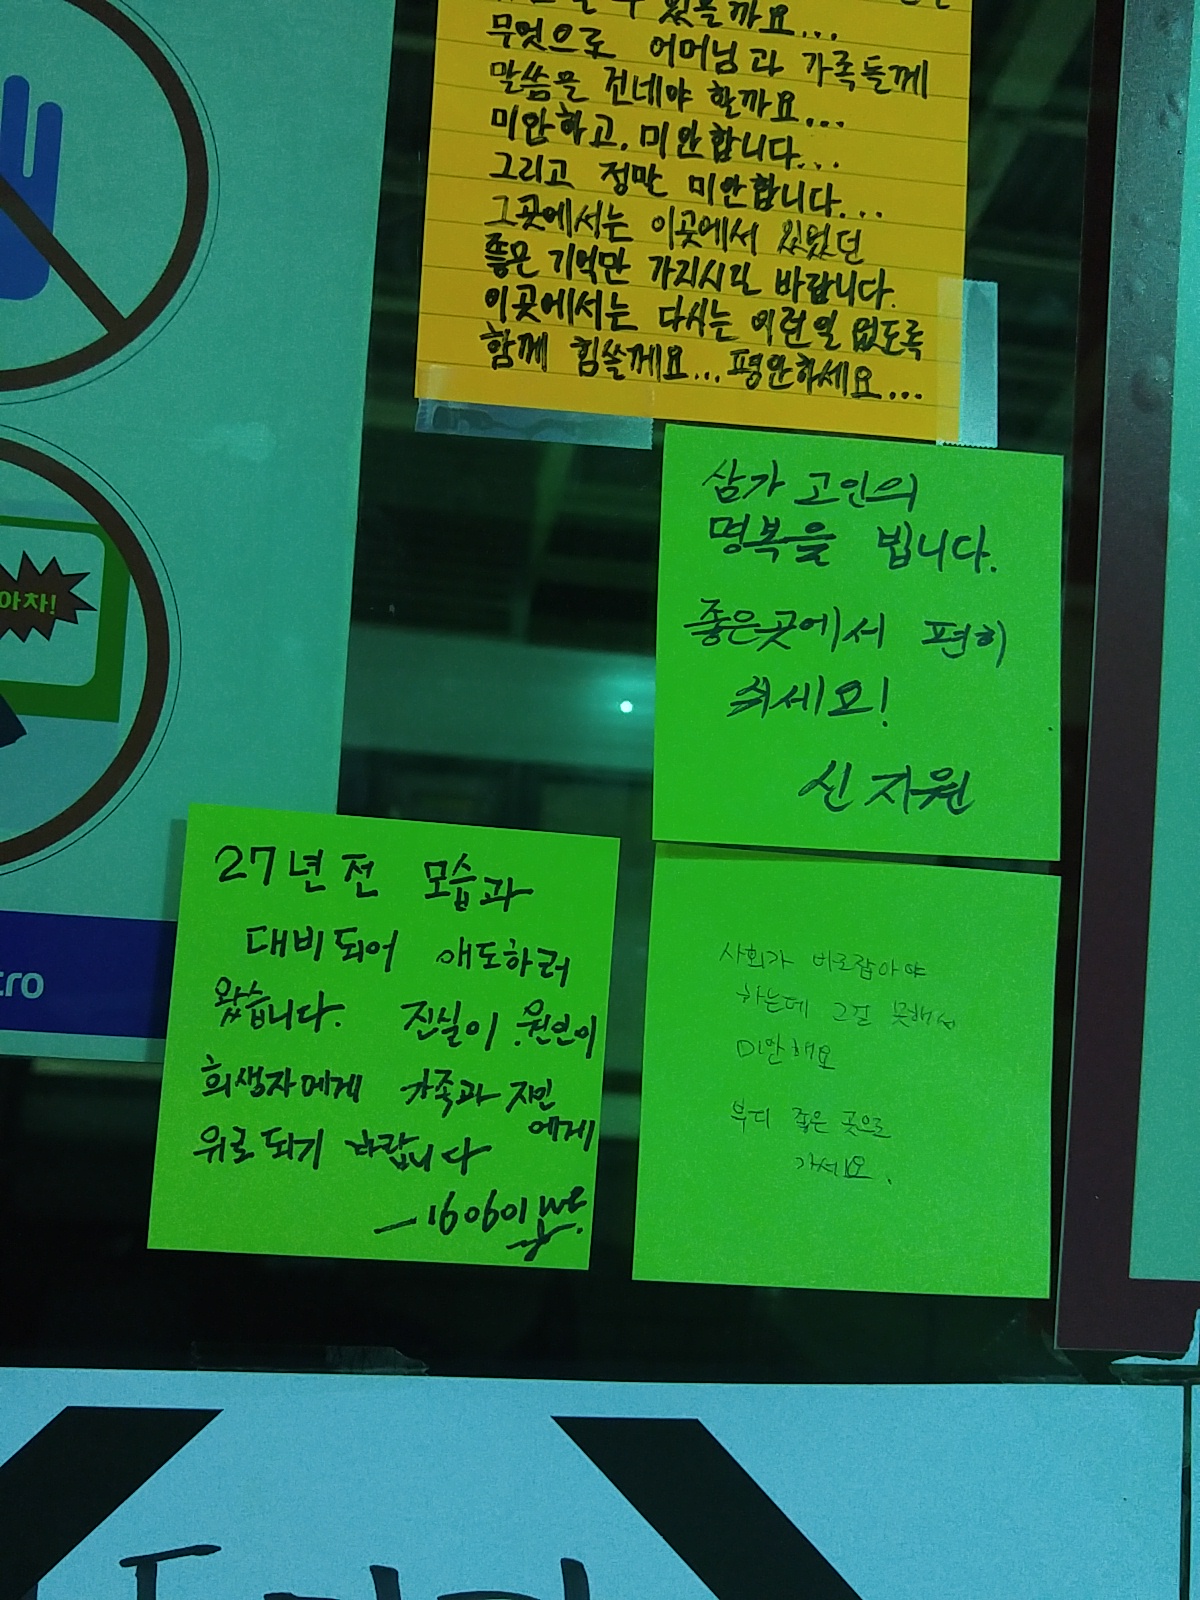 있을까요...
무엇으로 어머님과 가족들께
말씀을 건네야 할까요...
미안하고, 미안합니다...
그리고 정말 미안합니다...
그곳에서는 이곳에서 있었던
좋은 기억만 가지시길 바랍니다.
이곳에서는 다시는 이런일 없도록
함께 힘쓸께요... 평안하세요...
삼가 고인의
명복을 빕니다.
좋은곳에서 편히
쉬세요!
신지원
아차!
27년 전 모습과
대비되어 애도하러
왔습니다. 진실이 원인이
희생자에게 가족과 지인
에게
위로되기 바랍니다
160601
사회가 바로잡아야
하는데 그걸 못해서
미안해요
부디 좋은 곳으로
가세요.
tro